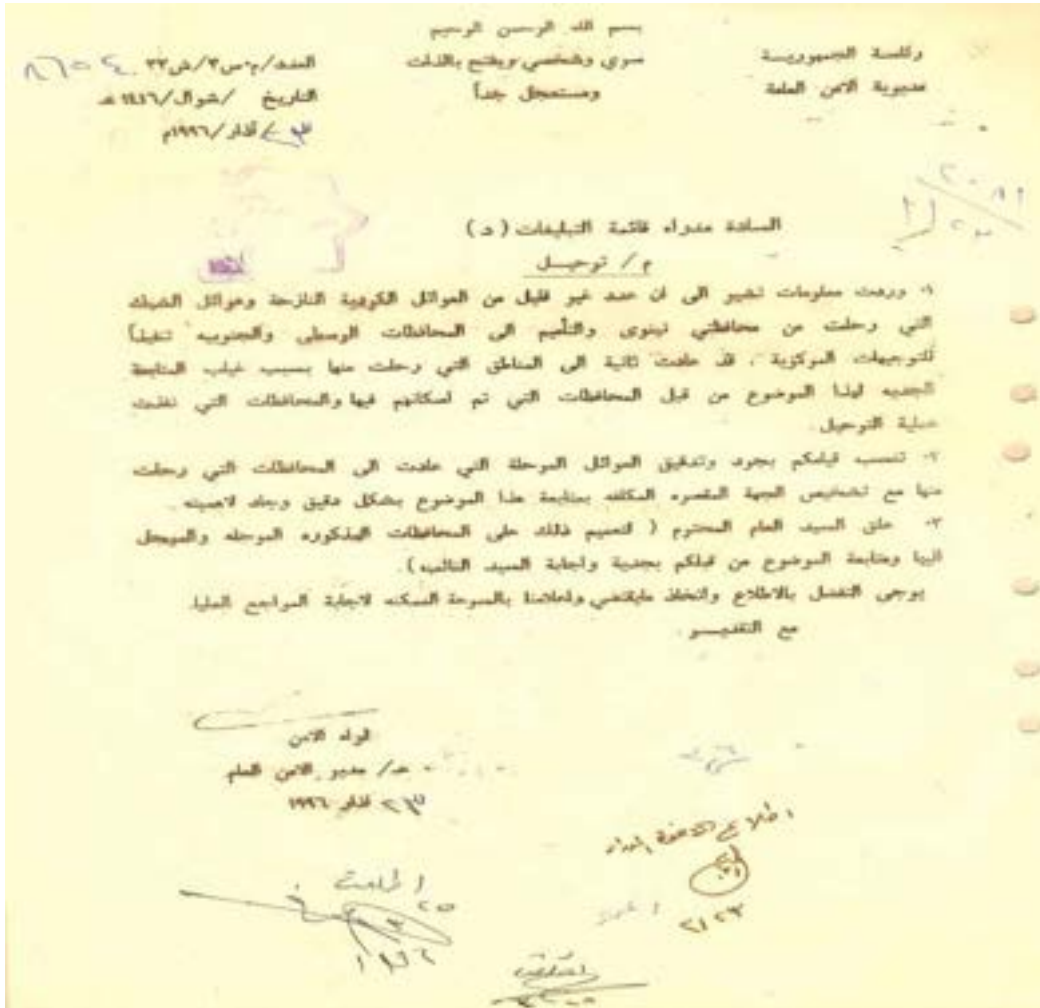 بسم الله الرحمن الرحيم
رئاسة الجمهورية
مديرية الامن العامة
سري وشخصي ويفتح بالذات
ومستعجل جداً
العدد/م.س٣/ش٣٢
التاريخ /شوال/١٤١٦هـ
٢٣/اذار/١٩٩٦م
السادة مدراء قائمة التبليغات (د)
م/ ترحيل
١- وردت معلومات تشير الى ان عدد غير قليل من العوائل الكردية النازحة وعوائل الشبك
التي رحلت من محافظتي نينوى والتأميم الى المحافظات الوسطى والجنوبيه تنفيذاً
للتوجيهات المركزية ، قد عادت ثانية الى المناطق التي رحلت منها بسبب غياب المتابعة
الجديه لهذا الموضوع من قبل المحافظات التي تم اسكانهم فيها والمحافظات التي نفذت
عملية الترحيل.
٢- تنسب قيامكم بجرد وتدقيق العوائل المرحلة التي عادت الى المحافظات التي رحلت
منها مع تشخيص الجهة المقصره المكلفه بمتابعة هذا الموضوع بشكل دقيق وجاد لاهميته .
٣- علق السيد العام المحترم ( لتعميم ذلك على المحافظات المذكوره المرحله والمرحل
اليها ومتابعة الموضوع من قبلكم بجدية واجابة السيد النائب).
يرجى التفضل بالاطلاع واتخاذ مايقتضي واعلامنا بالسرعة الممكنه لاجابة المراجع العليا.
مع التقديـــر .
لواء الامن
ع/ مدير الامن العام
٢٣ اذار ١٩٩٦
اطلعت
٢٥